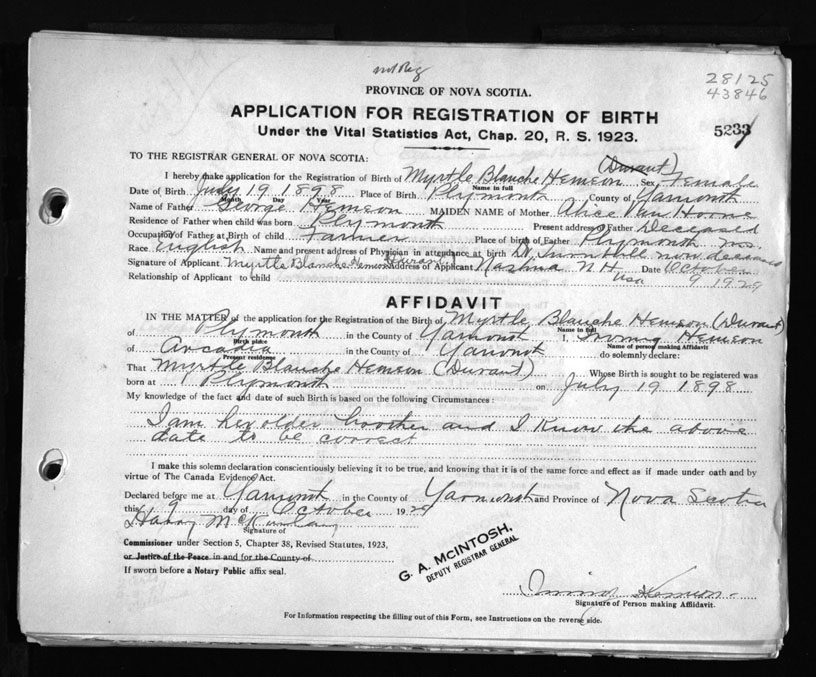 not Reg
28125
43846
PROVINCE OF NOVA SCOTIA.
APPLICATION FOR REGISTRATION OF BIRTH
Under the Vital Statistics Act, Chap. 20, R. S. 1923.
5233
TO THE REGISTRAR GENERAL OF NOVA SCOTIA:
(Durant)
I hereby make application for the Registration of Birth of Myrtle Blanche Hemeon Sex Female
Name in full
Date of Birth July 19 1898 Place of Birth Plymouth County of Yarmouth
Month Day Year
Name of Father George Hemeon MAIDEN NAME of Mother Alice Van Horne
Residence of Father when child was born Plymouth Present address of Father Deceased
Occupation of Father at Birth of child Farmer Place of birth of Father Plymouth N.S.
Race English Name and present address of Physician in attendance at birth Dr. Turnbull now deceased
Signature of Applicant Myrtle Blanche Hemeon Durant Address of Applicant Nashua N.H. USA Date October 9 1929
Relationship of Applicant to child
AFFIDAVIT
IN THE MATTER of the application for the Registration of the Birth of Myrtle Blanche Hemeon (Durant)
of Plymouth in the County of Yarmouth I, Irving Hemeon
Birth place Name of person making Affidavit
of Arcadia in the County of Yarmouth do solemnly declare:
Present residence
That Myrtle Blanche Hemeon (Durant) Whose Birth is sought to be registered was
born at Plymouth on July 19 1898
My knowledge of the fact and date of such Birth is based on the following Circumstances:
I am her older brother and I know the above
date to be correct
I make this solemn declaration conscientiously believing it to be true, and knowing that it is of the same force and effect as if made under oath and by
virtue of The Canada Evidence Act.
Declared before me at Yarmouth in the County of Yarmouth and Province of Nova Scotia
this 9 day of October 1929
Harry
Signature of
Commissioner under Section 5, Chapter 38, Revised Statutes, 1923,
or Justice of the Peace in and for the County of
If sworn before a Notary Public affix seal.
G. A. McINTOSH,
DEPUTY REGISTRAR GENERAL
Irving Hemeon
Signature of Person making Affidavit.
For Information respecting the filling out of this Form, see Instructions on the reverse side.